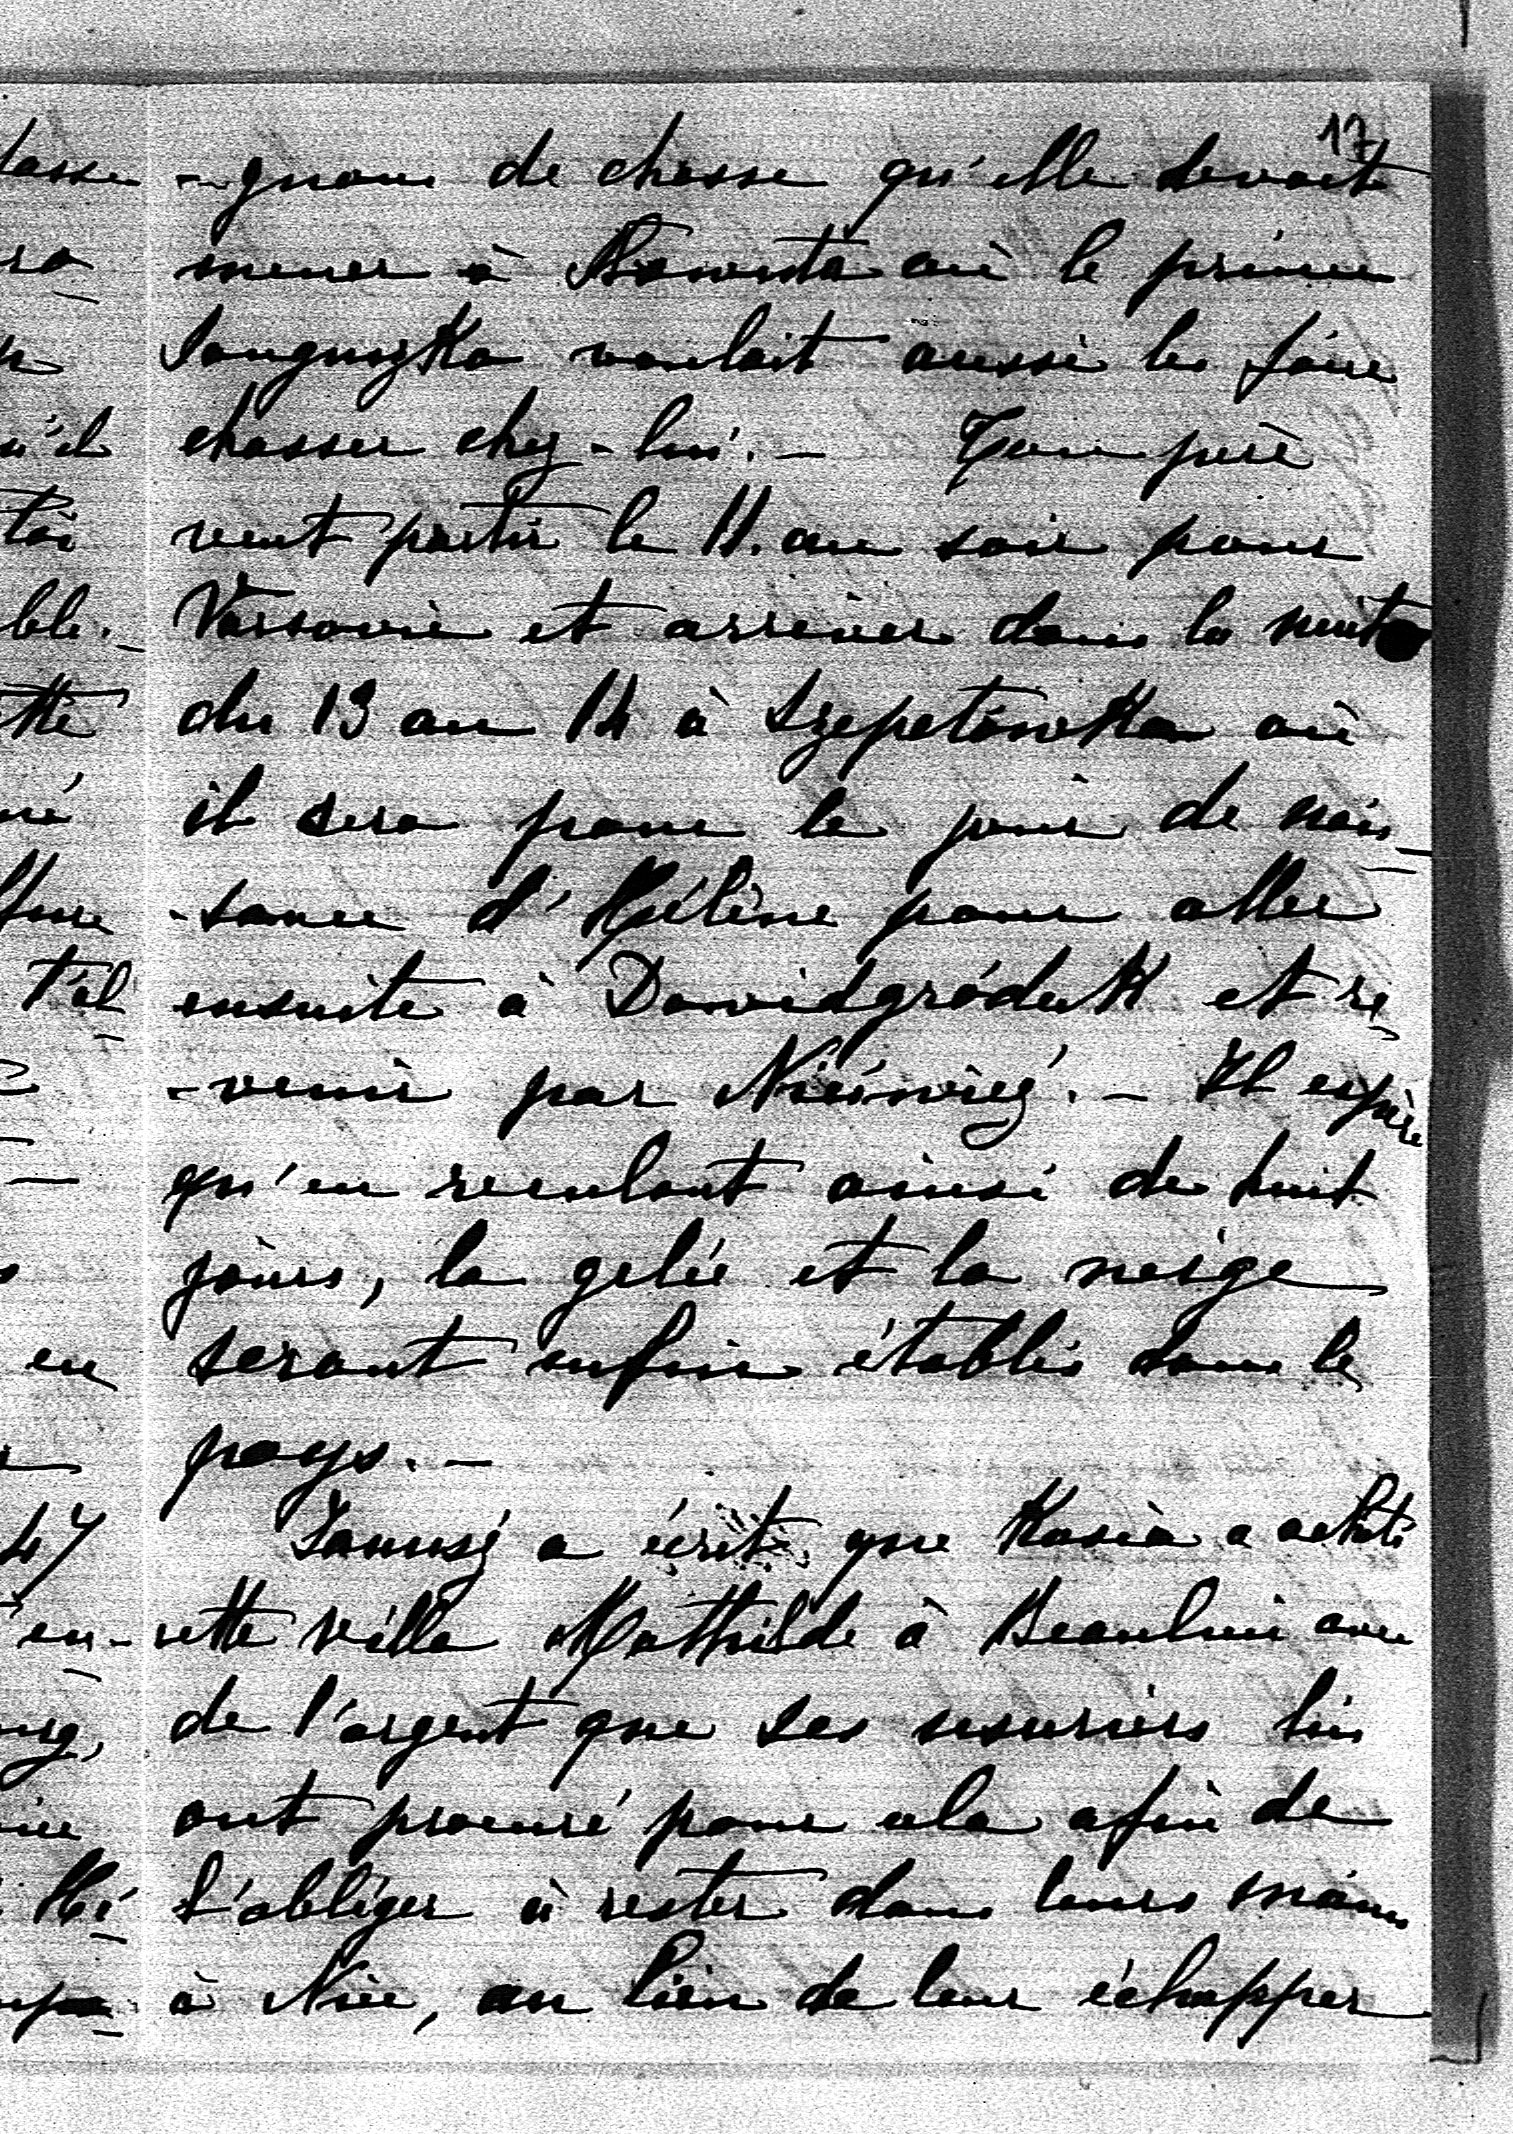 17
-gnons de chasse qu'elle devait
mener à Slawuta où le prince
Sanguszko voulait aussi les faire
chasser chez-lui. - Ton père
veut partir le 11. au soir pour
Varsovie et arriver dans la nuit
du 13 au 14 à Szepetówka où
il sera pour le jour de nais-
-sance d'Hélène pour aller
ensuite à Dawidgródek et re
-venir par Nieśwież. - Il espère
qu'en reculant ainsi de huit
jours, la gelée et la neige
seront enfin établis dans le
pays. -
Janusz a écrit que Kasia a acheté
cette villa Mathilde à Beaulieu avec
de l'argent que ses usuriers lui
ont procuré pour cela afin de
l'obliger à rester dans leurs mains
à Nice, au lieu de leur échapper